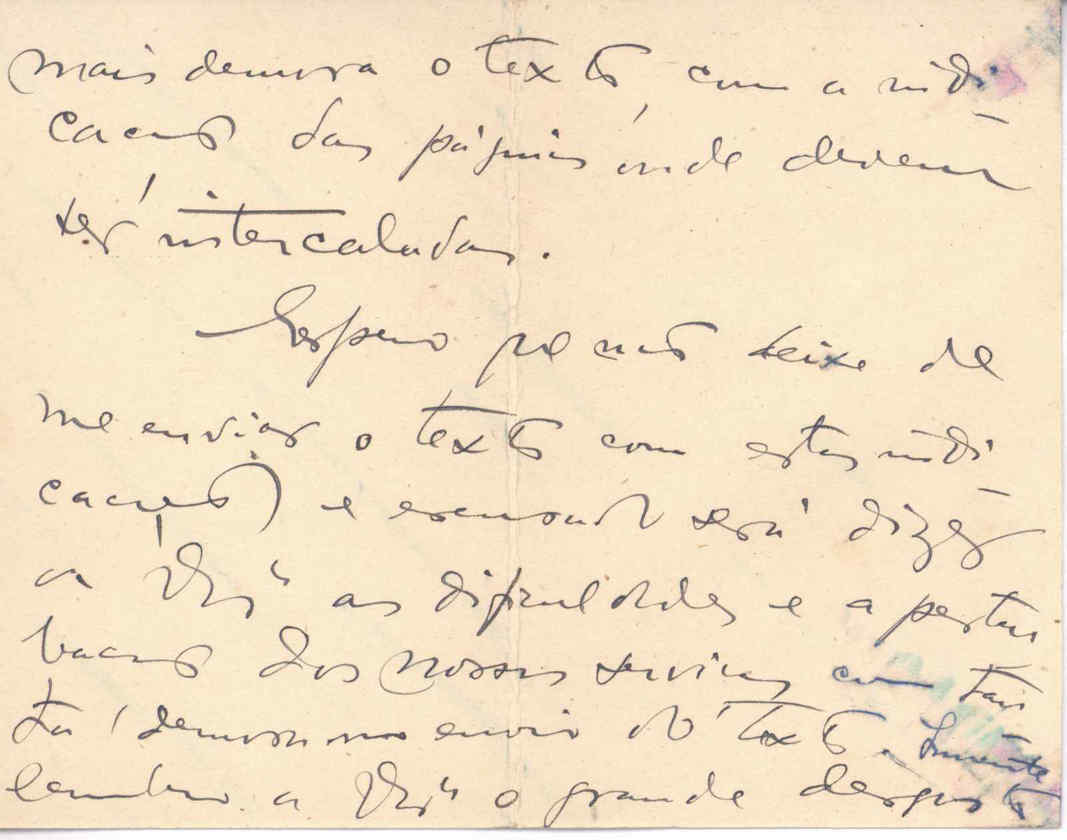 mais demora o texto, com a indi-
cação das páginas onde devem
ser intercaladas.
Espero que não deixe de
me enviar o texto com estas indi-
cações, e escusado será dizer
a V. Ex.ª as dificuldades e a pertur-
bação dos nossos serviços com tan-
ta demora no envio do texto. Sómente
lembro a V. Ex.ª o grande desgosto